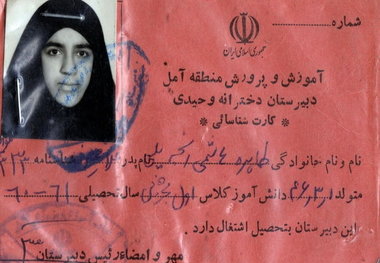 شماره :
جمهوری اسلامی ایران
آموزش و پرورش منطقه آمل
دبیرستان دخترانه وحیدی
* کارت شناسائی *
نام و نام خانوادگی طاهره نام پدر شناسنامه
متولد دانش آموز کلاس اول سال تحصیلی ۶۱-۶۰
این دبیرستان بتحصیل اشتغال دارد .
مهر و امضاء رئیس دبیرستان